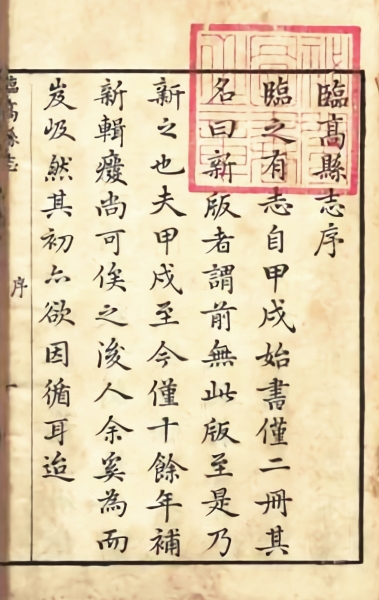 臨高縣志序
臨之有志自甲戌始書僅二冊其
名曰新版者謂前無此版至是乃
新之也夫甲戌至今僅十餘年補
新輯癈尚可俟之後人余奚為而
岌岌然其初亦欲因循耳迨
臨高縣志
序
一